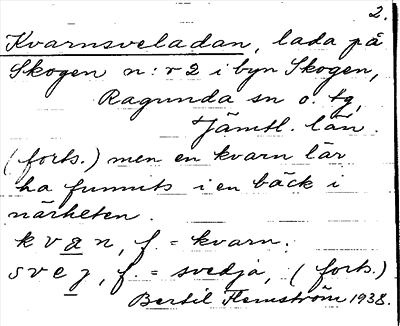 2.
Kvarnsveladan, lada på
Skogen n:r 2 i byn Skogen,
Ragunda sn o. tg,
Jämtl. län.
(forts.) men en kvarn lär
ha funnits i en bäck i
närheten.
kvan, f. = kvarn.
svej, f. = svedja, (forts.)
Bertil Flemström 1938.